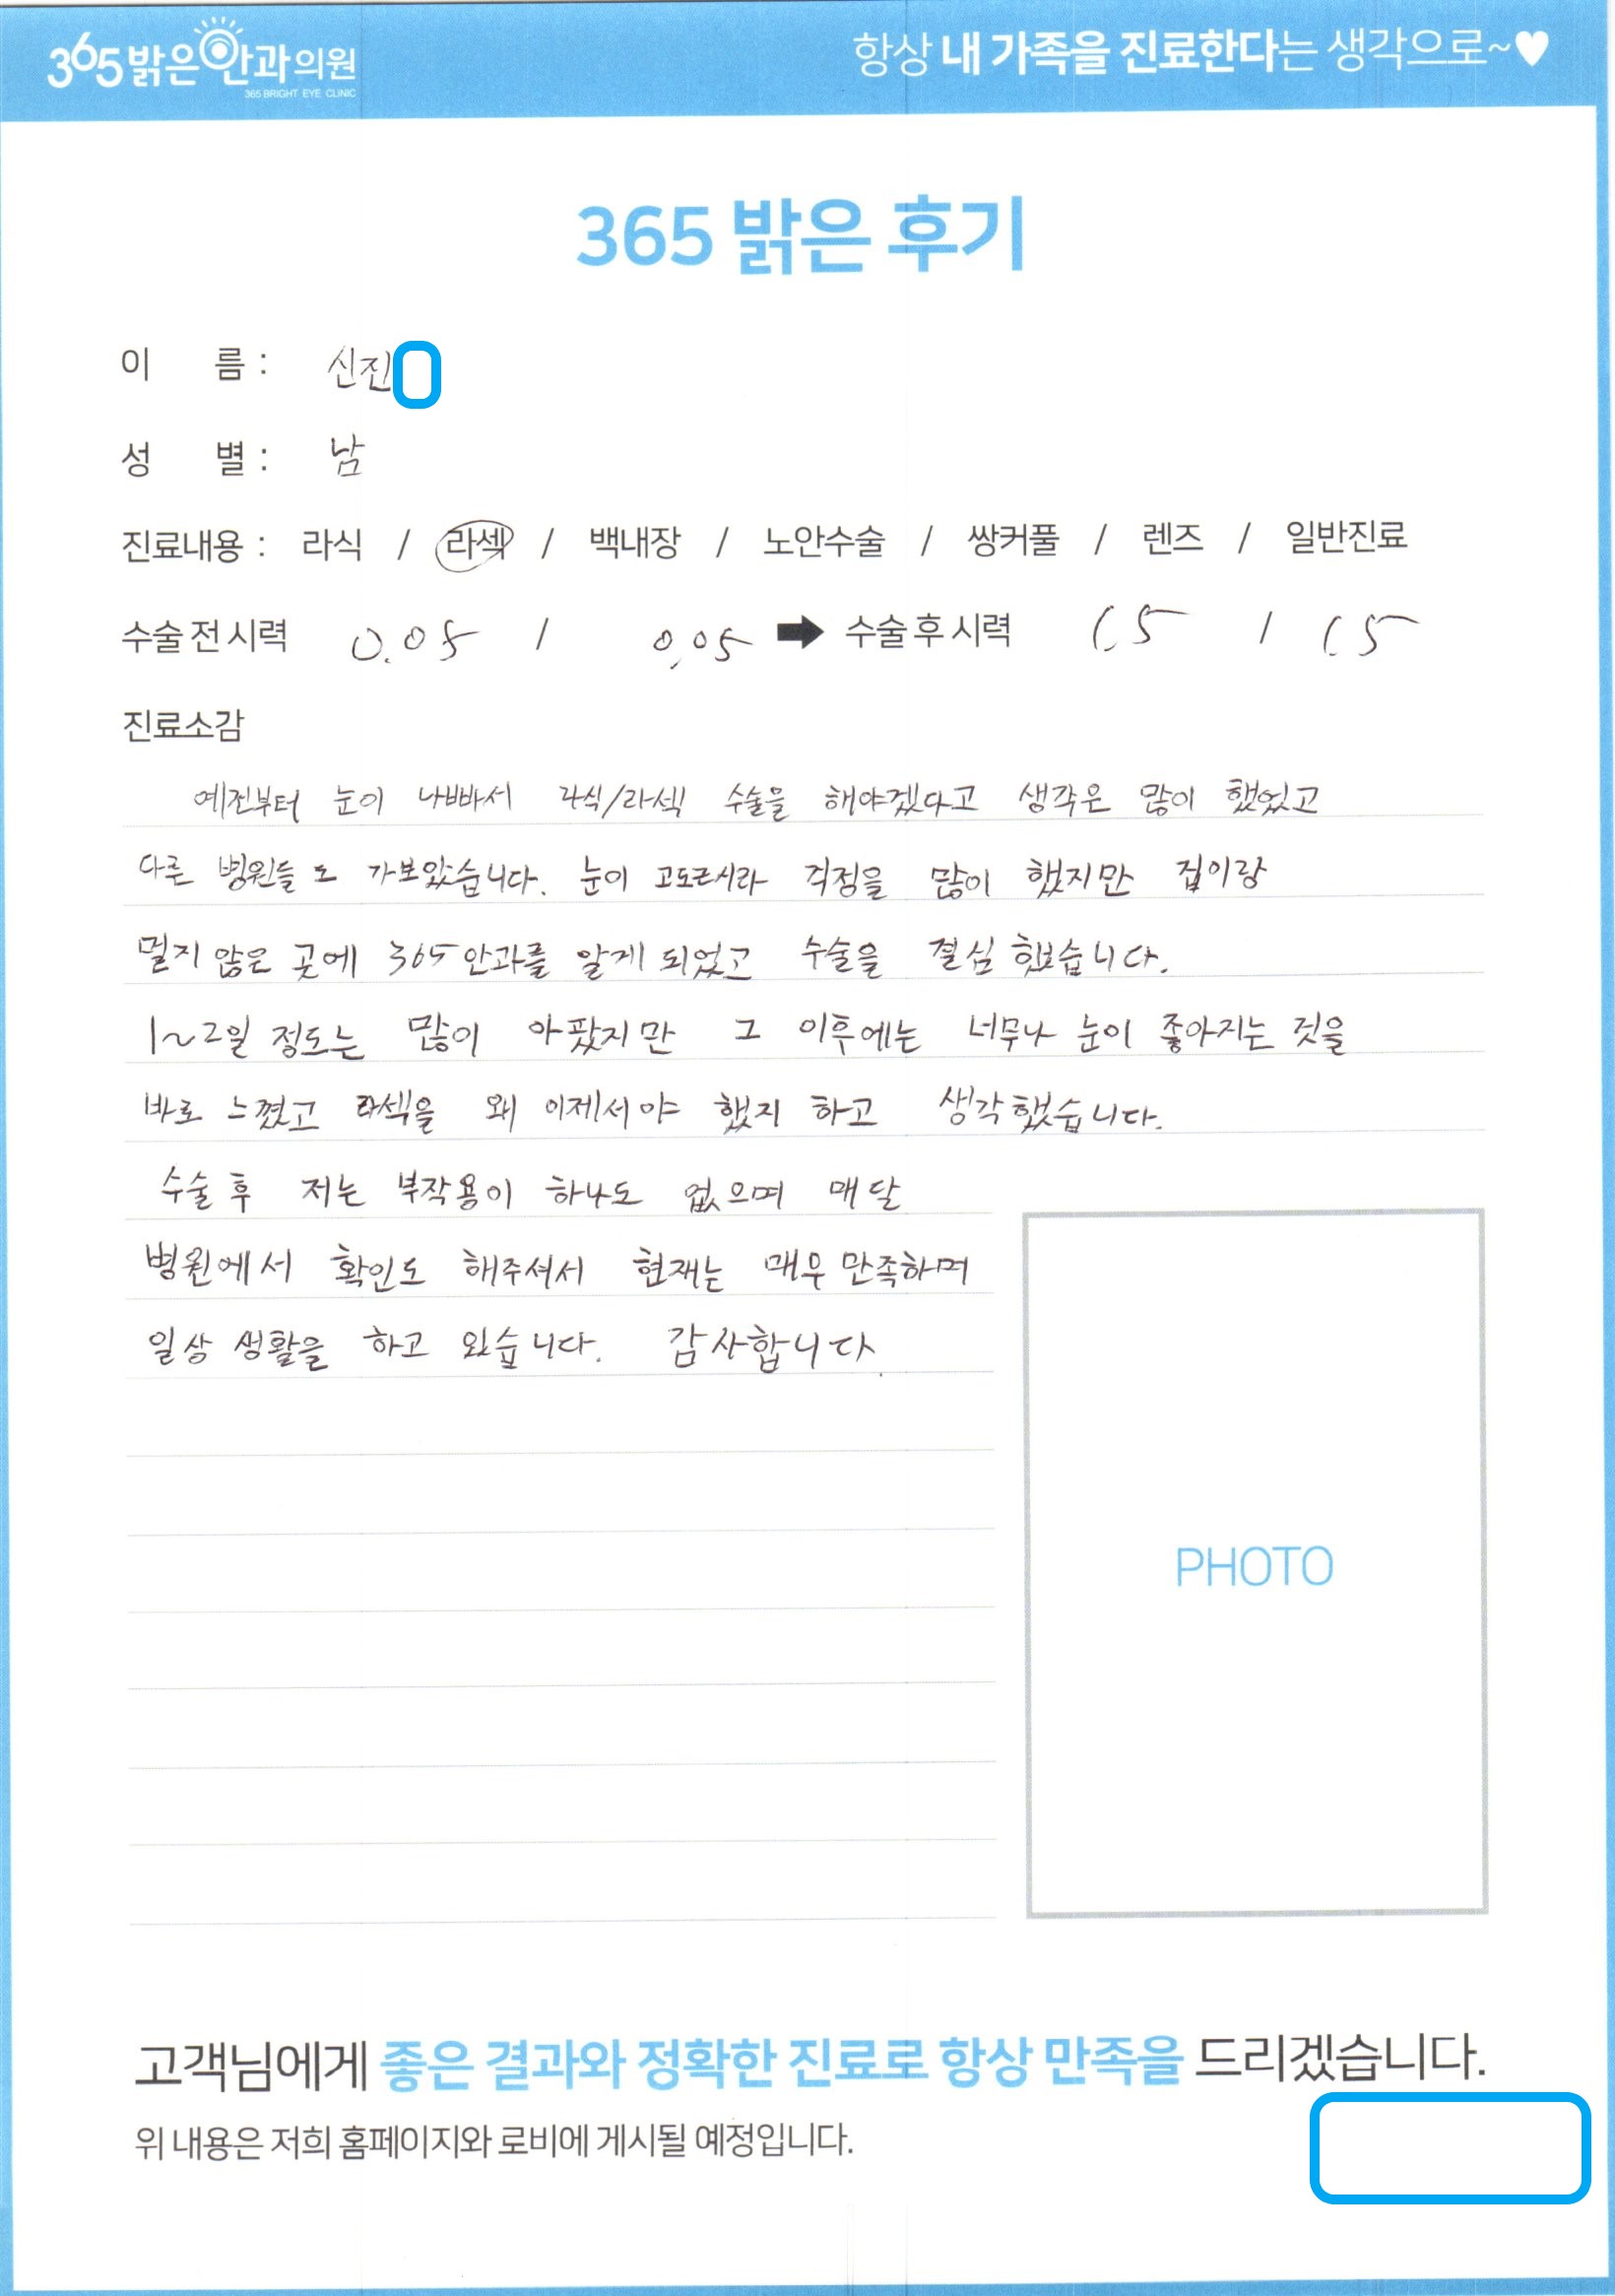 365밝은안과의원
365 BRIGHT EYE CLINIC
항상 내 가족을 진료한다는 생각으로~♥
365 밝은 후기
이 름 : 신진
성 별 : 남
진료내용 : 라식 / 라섹 / 백내장 / 노안수술 / 쌍커풀 / 렌즈 / 일반진료
수술 전 시력 0.05 / 0.05 ➡ 수술 후 시력 1.5 / 1.5
진료소감
예전부터 눈이 나빠서 라식/라섹 수술을 해야겠다고 생각은 많이 했었고
다른 병원들도 가보았습니다. 눈이 고도근시라 걱정을 많이 했지만 집이랑
멀지 않은 곳에 365안과를 알게 되었고 수술을 결심 했습니다.
1~2일 정도는 많이 아팠지만 그 이후에는 너무나 눈이 좋아지는 것을
바로 느꼈고 라섹을 왜 이제서야 했지 하고 생각했습니다.
수술 후 저는 부작용이 하나도 없으며 매달
병원에서 확인도 해주셔서 현재는 매우 만족하며
일상 생활을 하고 있습니다. 감사합니다.
PHOTO
고객님에게 좋은 결과와 정확한 진료로 항상 만족을 드리겠습니다.
위 내용은 저희 홈페이지와 로비에 게시될 예정입니다.